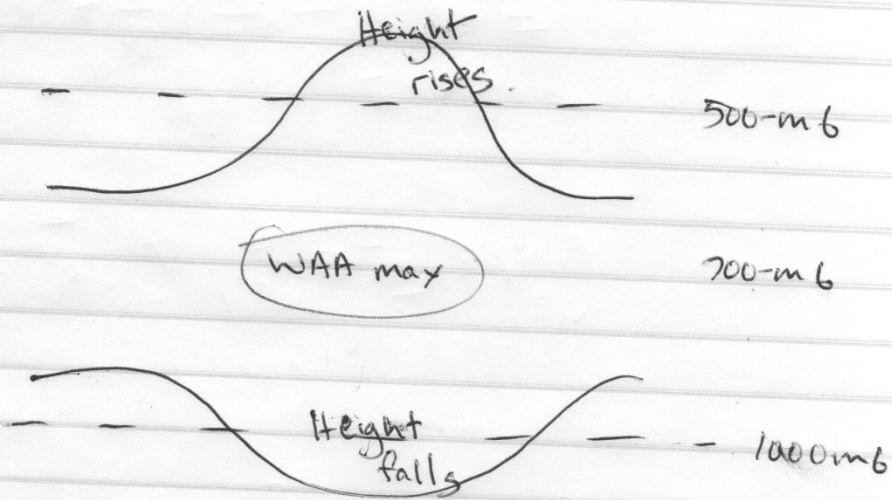 Height
rises.
500-mb
WAA max
700-mb
Height
falls
1000mb